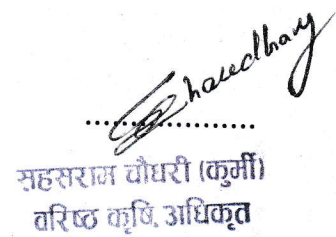 Chaudhary
..................
सहसराम चौधरी (कुर्मी)
वरिष्ठ कृषि अधिकृत